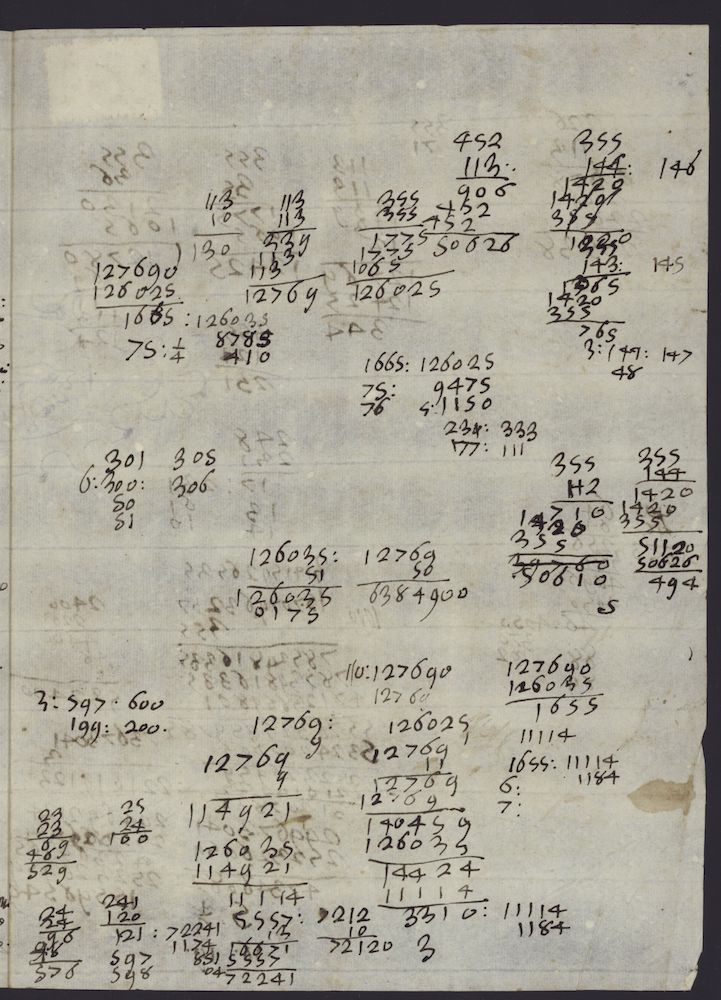 452 355
113: 144: 146
906 1420
452 1420
452 355
50626
113 113 355
10 113 355
130 339 1775
113 1775
12769 1065
126025
143: 145
1065
1420
355
765
3: 149: 147
48
127690
126025
1665 : 126035
75: 1/4 8785
410
1665: 126025
75: 9475
76 1150
234: 333
77: 111
301 305
6: 300: 306
50
51
355 355
142 144
710 1420
1420 1420
355 355
50610 51120
5 50626
494
126035: 12769
51 50
126035 6384900
0175
110: 127690 127690
12769 126035
1655
11114
1655: 11114
6: 1184
7:
3: 597 · 600
199: 200.
12769: 126025
9 12769
12769 11
9 12769
114921 12769
126035 140459
114921 126035
11114 14424
11114
3310: 11114
1184
23 25
23 24
69 100
469
529
24 241
24 120
96 121: 72241
48 597 1174
576 598 851
5557: 7212
13 10
16671 72120 3
5555
72241